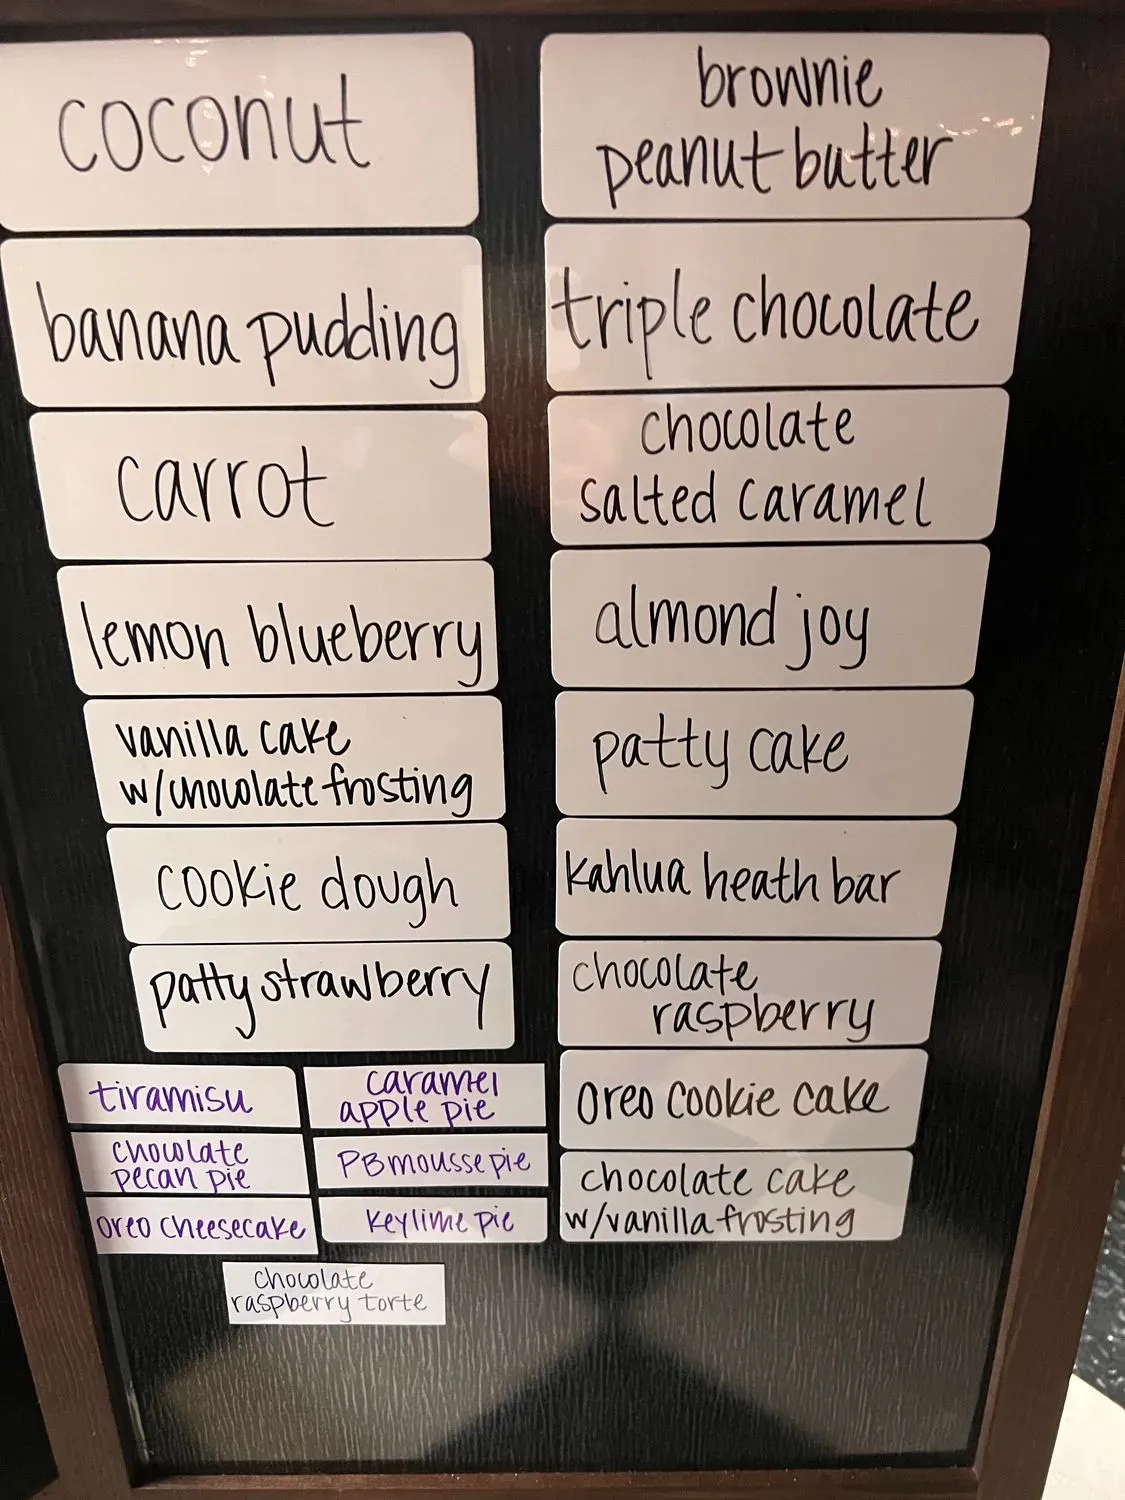 coconut
banana pudding
carrot
lemon blueberry
vanilla cake
w/chocolate frosting
cookie dough
patty strawberry
brownie
peanut butter
triple chocolate
chocolate
salted caramel
almond joy
patty cake
kahlua heath bar
chocolate
raspberry
oreo cookie cake
chocolate cake
w/vanilla frosting
tiramisu
chocolate
pecan pie
oreo cheesecake
caramel
apple pie
PB mousse pie
key lime pie
chocolate
raspberry torte